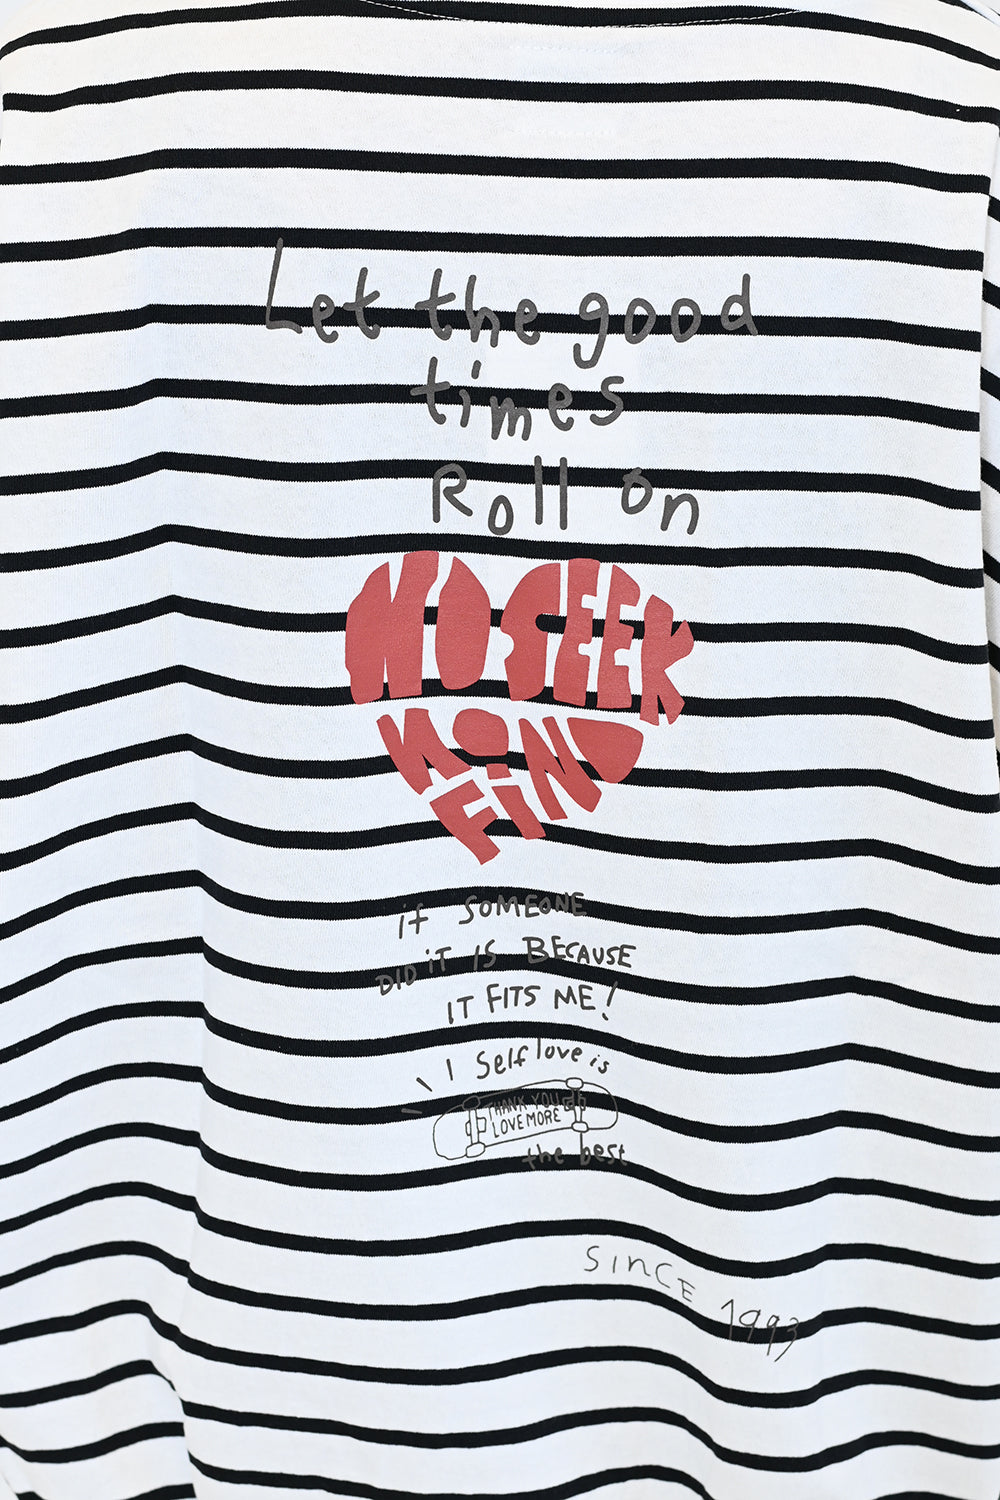 Let the good
times
Roll on
NO SEEK
NO
FIND
if SOMEONE
DID iT IS BECAUSE
IT FITS ME!
I Self love is
THANK YOU
LOVE MORE
the best
SINCE 1993